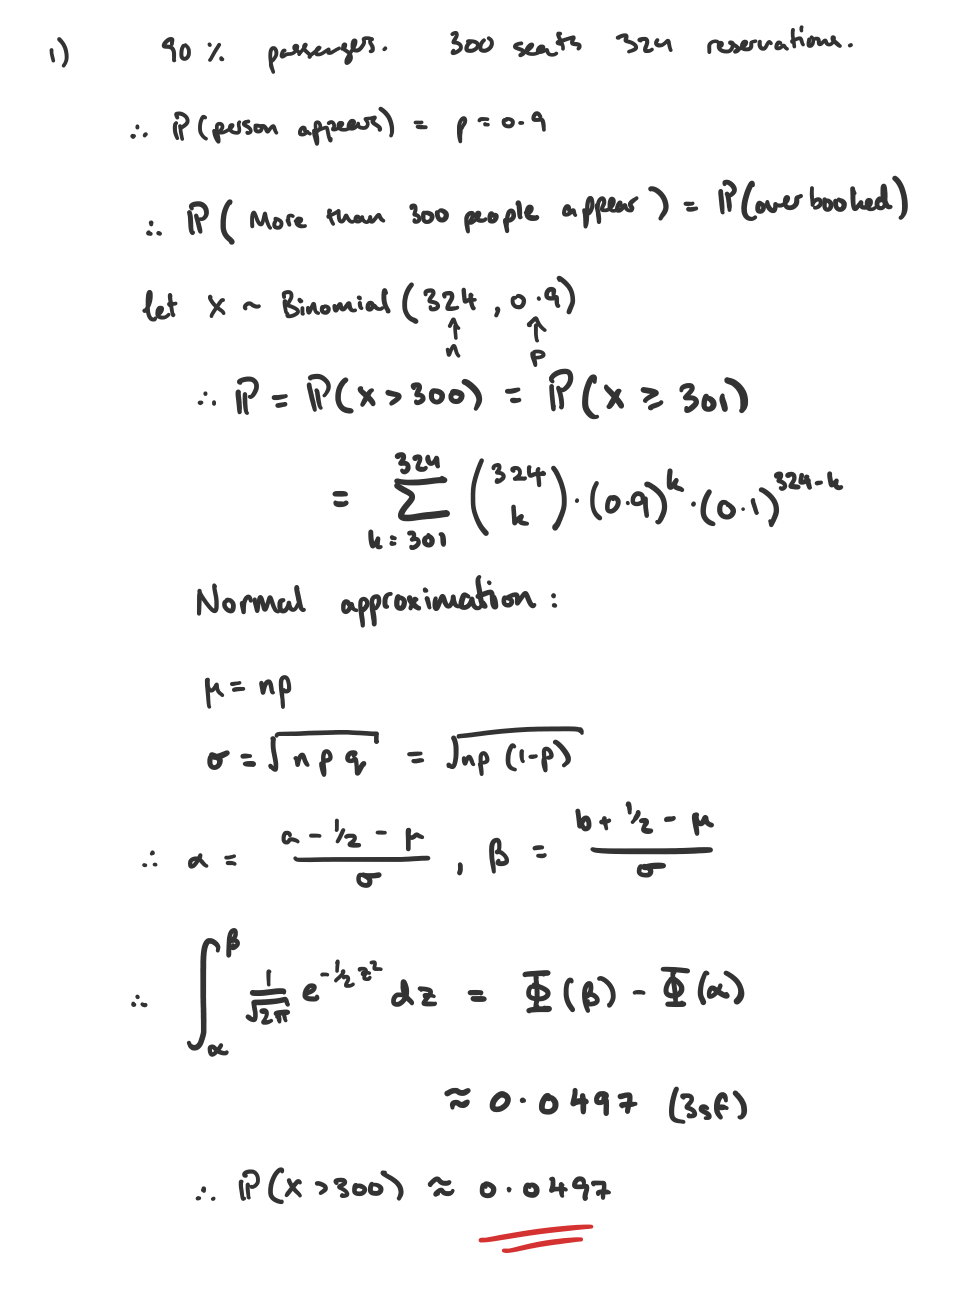 1) 90 % passengers. 300 seats 324 reservations.
∴ ℙ(person appears) = p = 0.9
∴ ℙ( More than 300 people appear ) = ℙ(overbooked)
let X ~ Binomial (324, 0.9)
↑ n ↑ p
∴ ℙ = ℙ(X > 300) = ℙ(X ≥ 301)
= ∑_{k=301}^{324} (324 k) · (0.9)^k · (0.1)^{324-k}
Normal approximation :
μ = np
σ = √(npq) = √(np(1-p))
∴ α = (a - 1/2 - μ)/σ , β = (b + 1/2 - μ)/σ
∴ ∫_α^β 1/√(2π) e^{-1/2 z²} dz = Φ(β) - Φ(α)
≈ 0.0497 (3sf)
∴ ℙ(X > 300) ≈ 0.0497